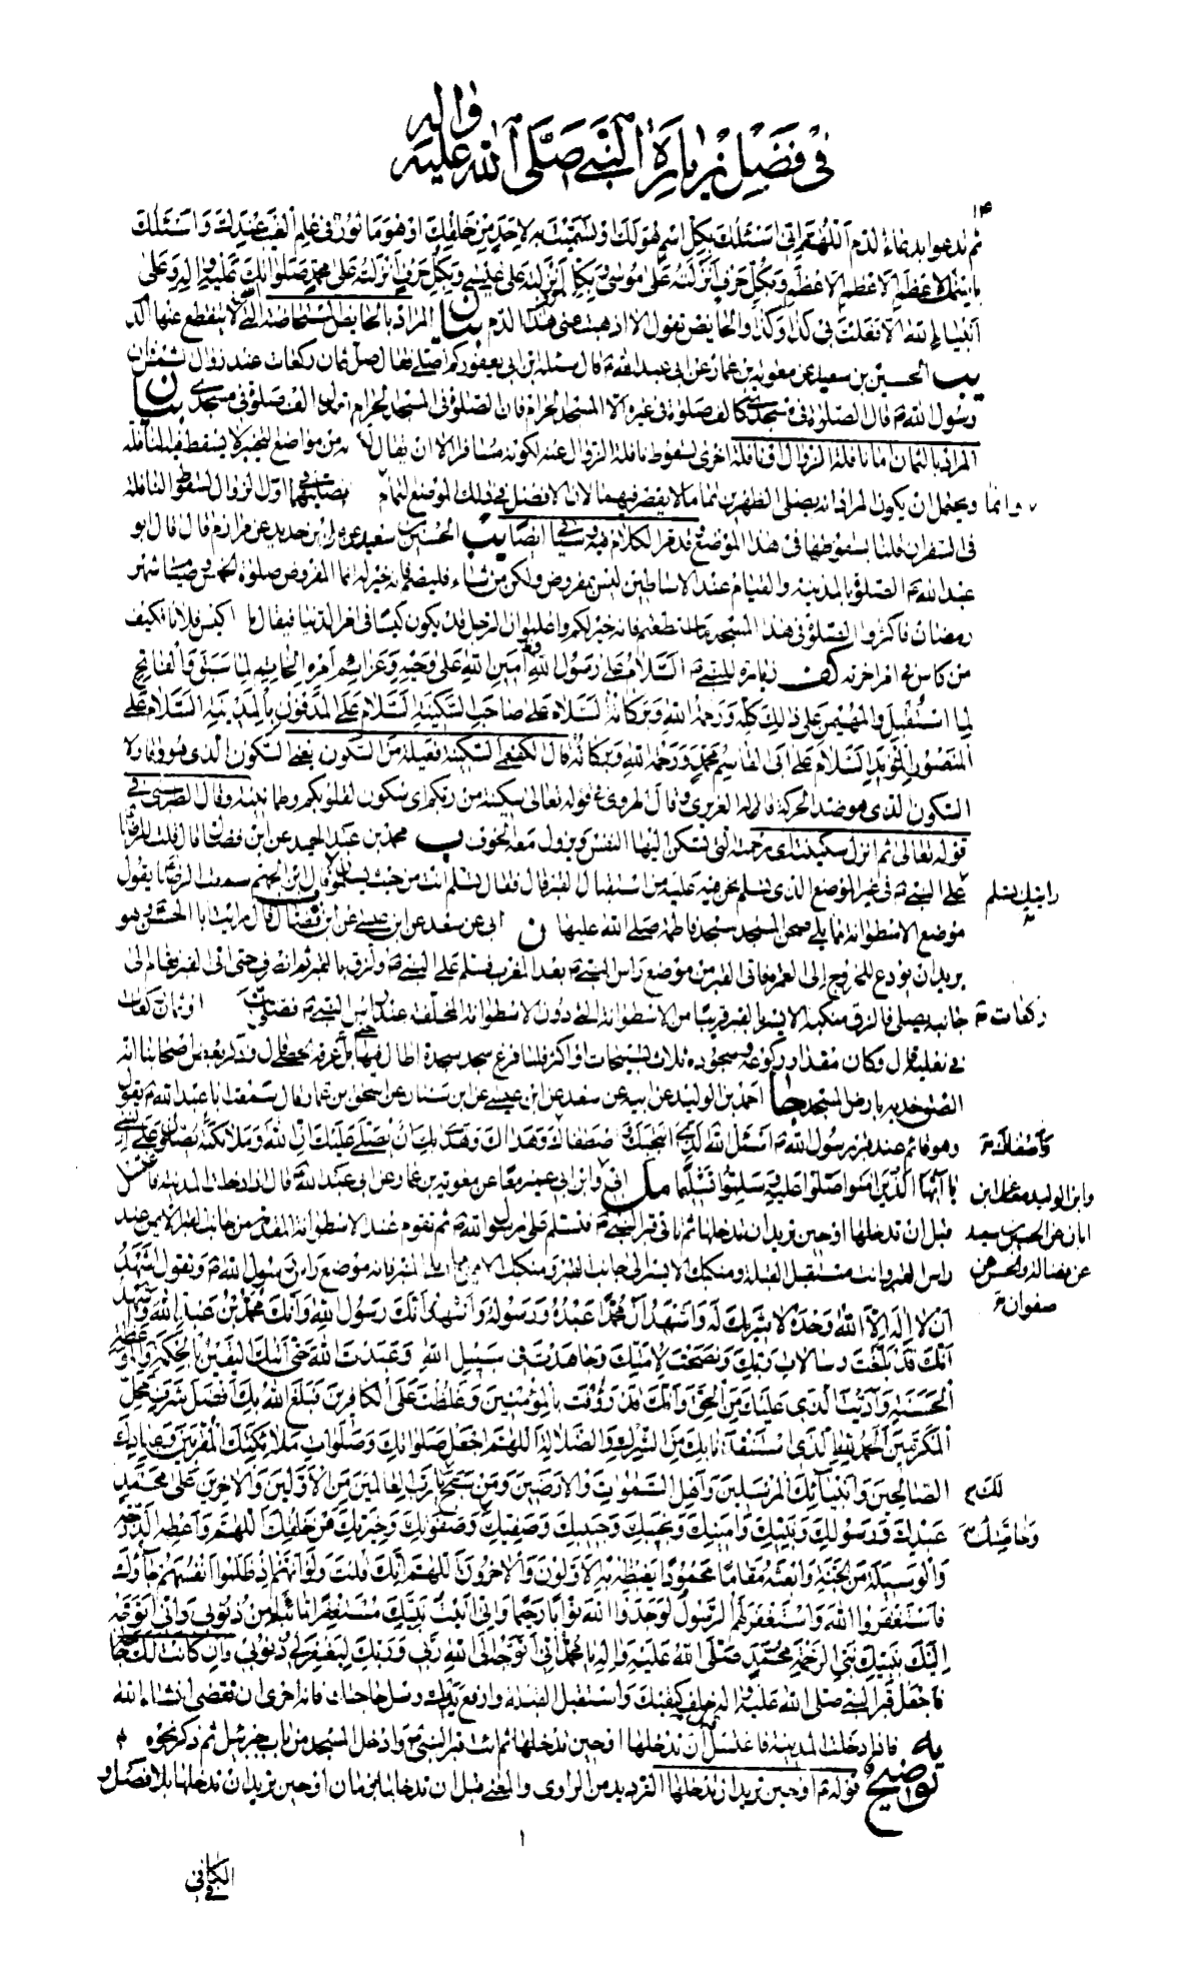 في فضل زيارة النبي صلى الله عليه واله
١٤
ثم تدعوا بدعاء الدم اللهم اني اسئلك بكل اسم هو لك او تسميت به لاحد من خلقك او هو مأثور في علم الغيب عندك واسئلك
باسمك الاعظم الاعظم الاعظم وبكل حرف انزلته على موسى وبكل حرف انزلته على عيسى وبكل حرف انزلته على محمد صلواتك عليه واله وعلى
انبياء الله الا فعلت بي كذا وكذا والحايض تقول الا اذهبت عني هذا الدم بيان المراد بالحايض المستحاضة التي لا ينقطع عنها الدم
يب الحسين بن سعيد عن معوية بن عمار عن ابي عبد الله ع قال سئله ابن ابي يعفور كم اصلي فقال صل ثمان ركعات عند زوال الشمس فان
رسول الله ص قال الصلوة في مسجدي كالف صلوة في غيره الا المسجد الحرام فان الصلوة في المسجد الحرام تعدل الف صلوة في مسجدي بيان
المراد بالثمان اما نافلة الزوال او نافلة اخرى لسقوط نافلة الزوال عنه لكونه مسافرا الا ان يقال من مواضع التخيير لا يسقط فيها النافلة
وانما ويحتمل ان يكون المراد انه يصلي الظهرين تماما لا يقصر فيهما لان الافضل في ذلك الموضع التمام اول الزوال لسقوط النافلة
في السفر ان قلنا بسقوطها في هذا الموضع وقد مر الكلام فيه وسيأتي ايضا يب الحسين بن سعيد عن حديد عن مرازم قال قال ابو
عبد الله ع الصلوة بالمدينة والقيام عند الاساطين ليس بمفروض ولكن من شاء فليصم فانه خير له انما المفروض صلوة الخمس وصيام شهر
رمضان فاكثروا الصلوة في هذا المسجد ما استطعتم فانه خير لكم واعلموا ان الرجل قد يكون كيسا في امر الدنيا فيقال ما اكيس فلانا فكيف
من كاس في امر اخرته كف زيارة للنبي ص السلام على رسول الله ص امين الله على وحيه وعزائم امره الخاتم لما سبق والفاتح
لما استقبل والمهيمن على ذلك كله ورحمة الله وبركاته السلام على صاحب السكينة السلام على المدفون بالمدينة السلام على
المنصور المؤيد السلام على ابي القاسم محمد ورحمة الله وبركاته قال الكفعمي السكينة فعيلة من السكون يعني السكون الذي هو وقار لا
السكون الذي هو ضد الحركة قاله العزيزي وقال الهروي في قوله تعالى سكينة من ربكم اي سكون لقلوبكم وطمأنينة وقال الطبرسي في
قوله تعالى ثم انزل سكينته اي رحمته التي تسكن اليها النفس ويزول معه الخوف ب محمد بن عبد الحميد عن ابن فضال قال قلت للرضا
رايتك تسلم على النبي ص في غير الموضع الذي نسلم نحن فيه عليه من استقبال القبر قال فقال تسلم انت من حيث يسلمون قال ابن الجهم سمعت الرضا يقول
موضع الاسطوانة مما يلي صحن المسجد مسجد فاطمة صلى الله عليها ن ابي عن سعد عن ابن عيسى عن ابن فضال قال رايت ابا الحسن وهو
يريد ان يودع للخروج الى العمرة فاتى القبر من موضع راس النبي ص بعد المغرب فسلم على النبي ص ولزق بالقبر ثم انصرف حتى اتى القبر فقام الى
جانبه يصلي فالزق منكبه الايسر بالقبر قريبا من الاسطوانة التي دون الاسطوانة المخلقة عند راس النبي ص فصلى ست او ثمان ركعات
ركعات
في نعليه قال وكان مقدار ركوعه وسجوده ثلاث تسبيحات او اكثر فلما فرغ سجد سجدة اطال فيها حتى بل عرقه الحصى قال وذكر بعض اصحابنا انه
الصق خديه بارض المسجد جا احمد بن الوليد عن ابيه عن سعد عن ابن عيسى عن ابن سنان عن اسحق بن عمار قال سمعت ابا عبد الله ع يقول
وهو قائم عند قبر رسول الله ص اسئل الله الذي انتجبك واصطفاك وهداك وهدى بك ان يصلي عليك ان الله وملائكته يصلون على النبي
يا ايها الذين امنوا صلوا عليه وسلموا تسليما مل ابي وابن ابي عمير معا عن معوية بن عمار عن ابي عبد الله قال اذا دخلت المدينة فاغتسل
وابن الوليد معا عن ابن
ابان عن الحسين بن سعيد
عن فضالة والحسن عن
صفوان
قبل ان تدخلها او حين تريد ان تدخلها ثم تاتي قبر النبي ص فتسلم على رسول الله ص ثم تقوم عند الاسطوانة المقدمة من جانب القبر الايمن عند
راس القبر وانت مستقبل القبلة ومنكبك الايسر الى جانب القبر ومنكبك الايمن مما يلي المنبر فانه موضع راس رسول الله ص وتقول اشهد
ان لا اله الا الله وحده لا شريك له واشهد ان محمدا عبده ورسوله واشهد انك رسول الله وانك محمد بن عبد الله واشهد
انك قد بلغت رسالات ربك ونصحت لامتك وجاهدت في سبيل الله وعبدت الله حتى اتاك اليقين بالحكمة والموعظة
الحسنة واديت الذي عليك من الحق وانك قد رؤفت بالمؤمنين وغلظت على الكافرين فبلغ الله بك افضل شرف محل
المكرمين الحمد لله الذي استنقذنا بك من الشرك والضلالة اللهم اجعل صلواتك وصلوات ملائكتك المقربين وعبادك
لك الصالحين وانبيائك المرسلين واهل السموات والارضين ومن سبح يا رب العالمين من الاولين والاخرين على محمد
عبدك ورسولك ونبيك وامينك ونجيك وحبيبك وصفيك وصفوتك وخيرتك من خلقك اللهم واعطه الدرجة
وخاصتك
والوسيلة من الجنة وابعثه مقاما محمودا يغبطه به الاولون والاخرون اللهم انك قلت ولو انهم اذ ظلموا انفسهم جاؤك
فاستغفروا الله واستغفر لهم الرسول لوجدوا الله توابا رحيما واني اتيت نبيك مستغفرا تائبا من ذنوبي واني اتوجه
اليك بنبيك نبي الرحمة محمد صلى الله عليه واله يا محمد اني اتوجه الى الله ربي وربك ليغفر لي ذنوبي وان كانت لك حاجة
فاجعل قبر النبي صلى الله عليه واله خلف كتفيك واستقبل القبلة وارفع يديك وسل حاجتك فانه احرى ان تقضى انشاء الله
يه فاذا دخلت المدينة فاغتسل قبل ان تدخلها او حين تدخلها ثم ائت قبر النبي ص وادخل المسجد من باب جبرئيل ثم ذكر نحوه
توضيح قوله ع او حين تريد ان تدخلها الترديد من الراوي والمعنى قبل ان تدخلها بزمان او حين تريد ان تدخلها بلا فصل و
١
الكافي
في